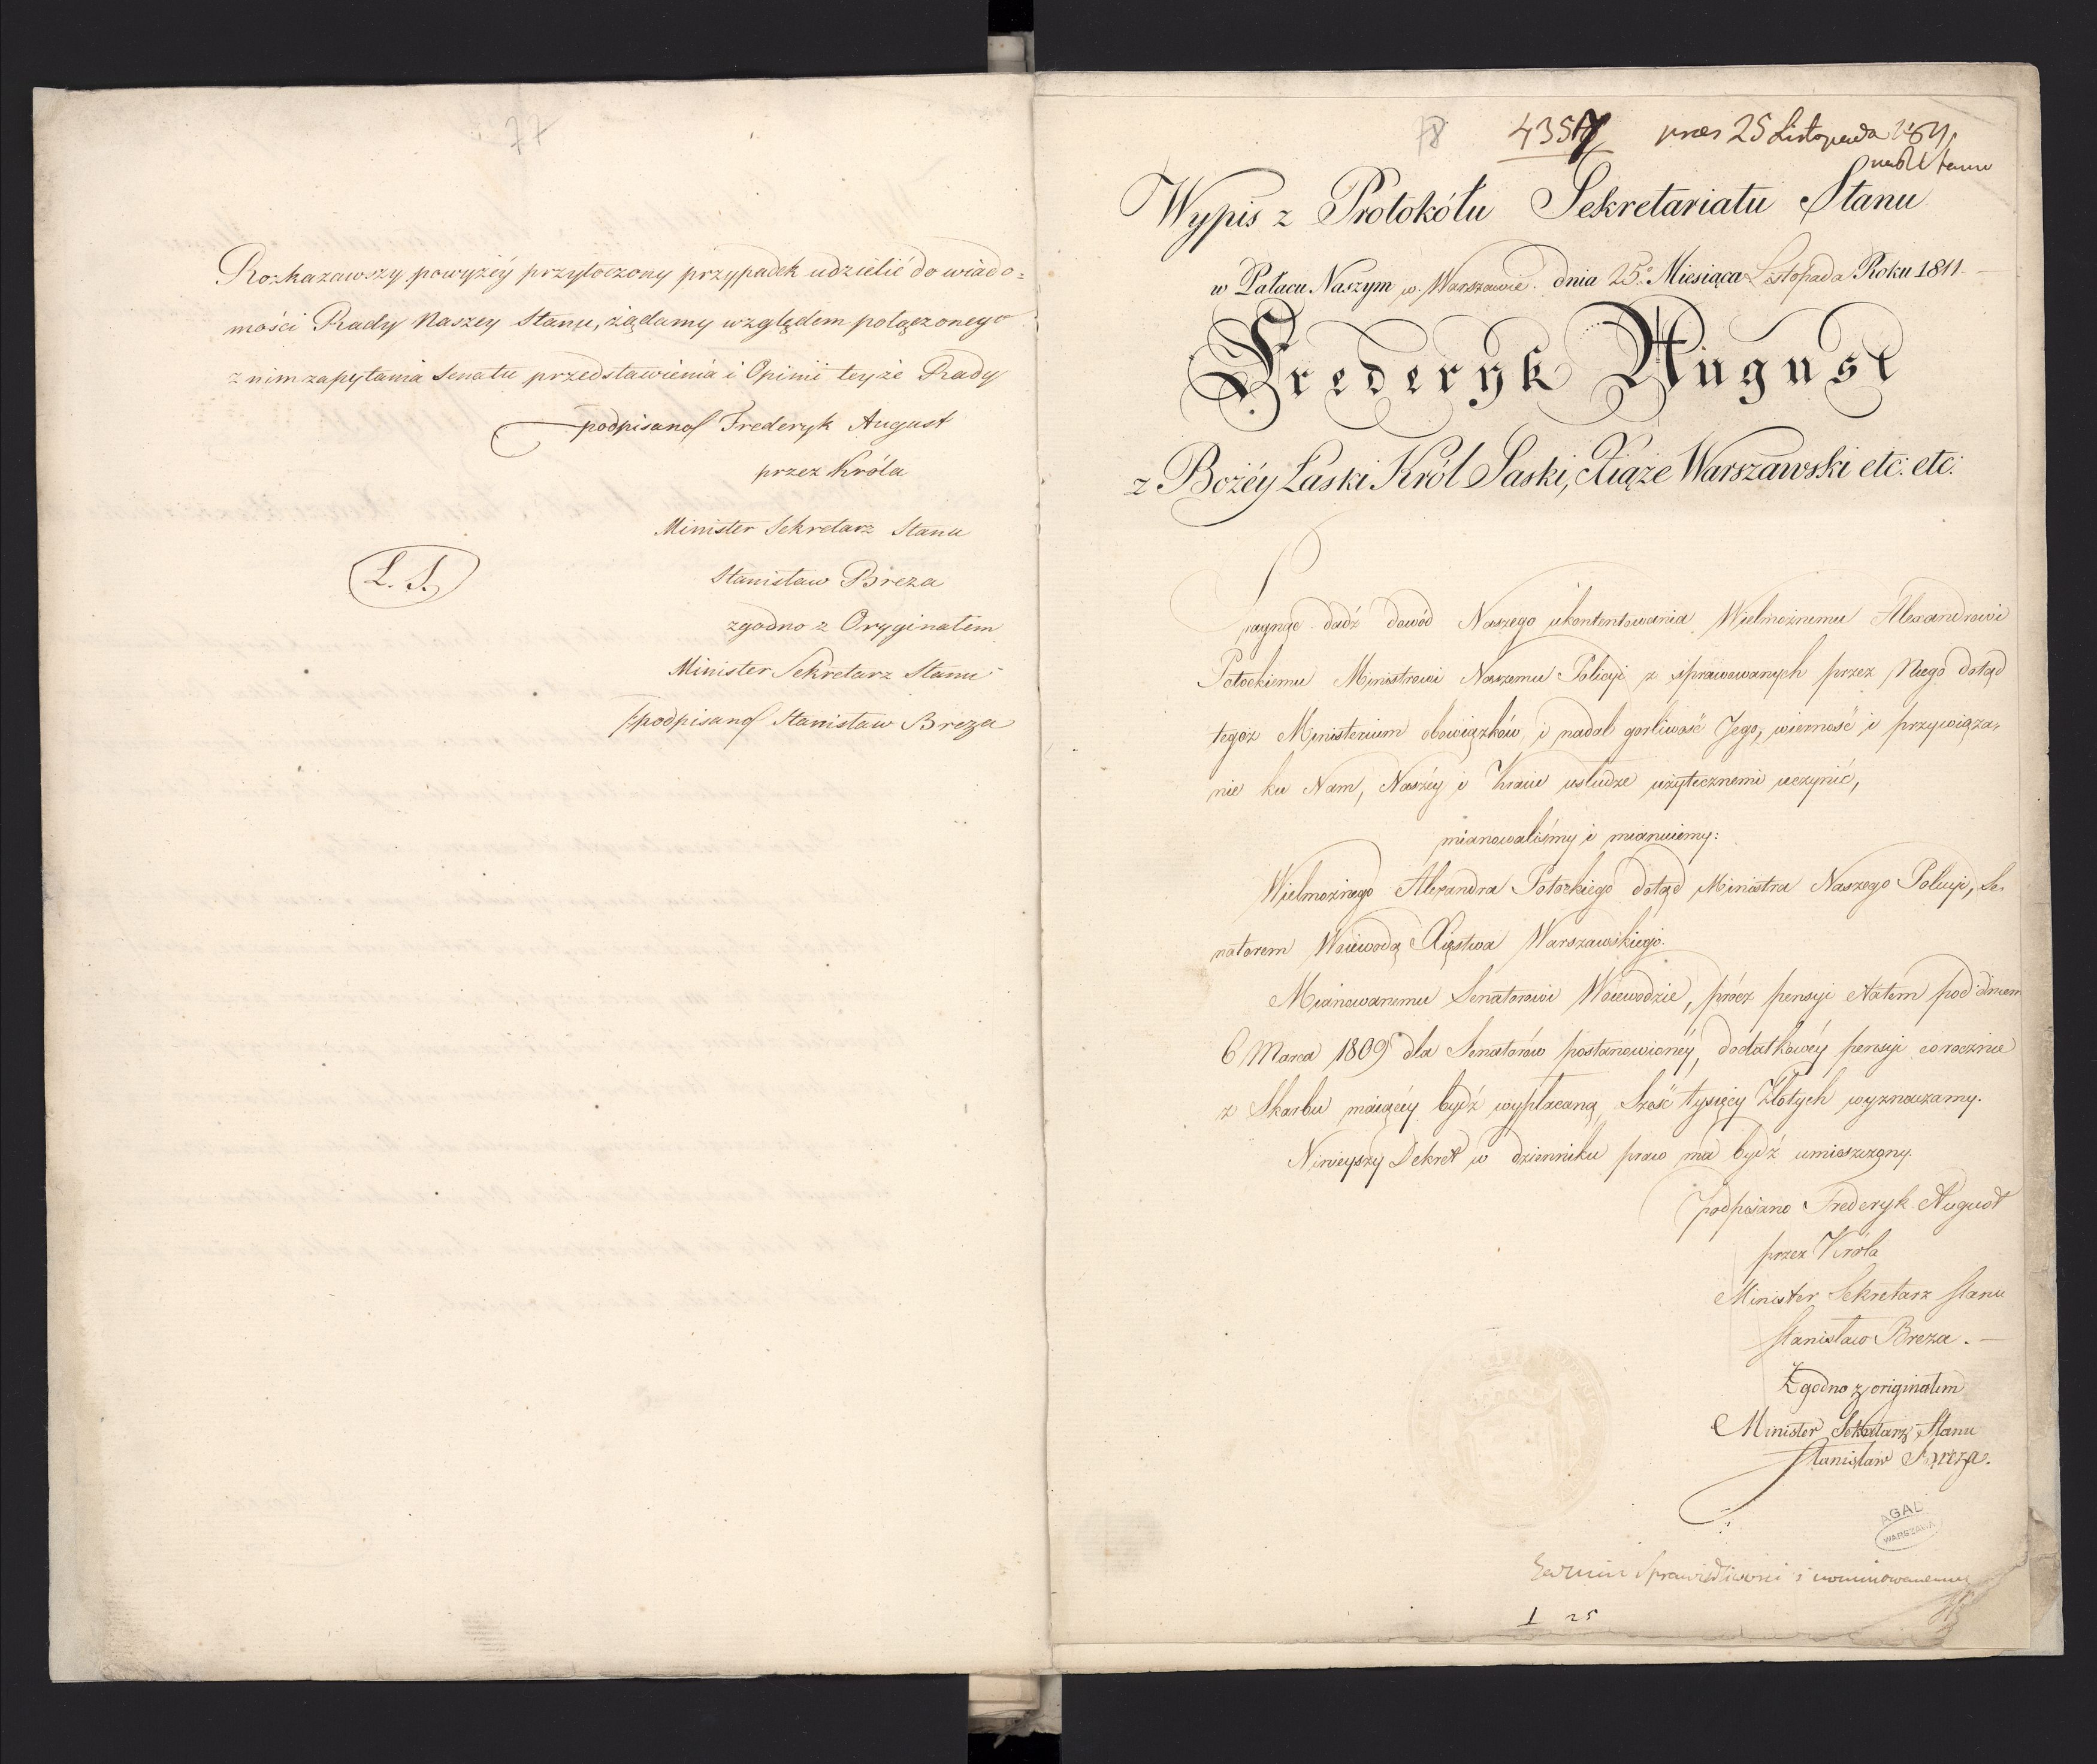 77
Rozkazawszy powyżéy przytoczony przypadek udzielić do wiado=
mości Rady Naszey Stanu, żądamy względem połączonego
z nim zapytania Senatu przedstawienia i Opinii teyże Rady
podpisano/ Frederyk August
przez Króla
Minister Sekretarz Stanu
L. S.
Stanisław Breza
zgodno z Oryginałem
Minister Sekretarz Stanu
/:podpisano/ Stanisław Breza
78 4357 pres 25 Listopada 1811
Wypis z Protokółu Sekretariatu Stanu
w Pałacu Naszym w Warszawie dnia 25º Miesiąca Listopada Roku 1811.
Frederyk August
z Bożéy Łaski Król Saski, Xiąże Warszawski etc: etc:
Pragnąc dadź dowód Naszego ukontentowania Wielmożnemu Alexandrowi
Potockiemu Ministrowi Naszemu Policyi z sprawowanych przez Niego dotąd
tegóż Ministerium obowiązków, i nadal gorliwość Jego, wierność i przywiąza,
nie ku Nam, Naszéy i Kraiu usłudze użytecznemi uczynić,
mianowaliśmy i mianuiemy:
Wielmożnego Alexandra Potockiego dotąd Ministra Naszego Policyi, Se,
natorem Woiewodą Xięstwa Warszawskiego.
Mianowanemu Senatorowi Woiewodzie, prócz pensyi etatem pod dniem
6 Marca 1809 dla Senatorów postanowionéy, dodatkowéy pensyi corocznie
z Skarbu maiącéy bydź wypłacaną, Sześć tysięcy Złotych wyznaczamy.
Ninieyszy Dekret w dzienniku praw ma bydź umieszczony.
podpisano Frederyk August
przez Króla
Minister Sekretarz Stanu
Stanisław Breza. —
Zgodno z originałem
Minister Sekretarz Stanu
Stanisław Breza.
AGAD
WARSZAWA
Sprawiedliwości i nominowanemu
1 25